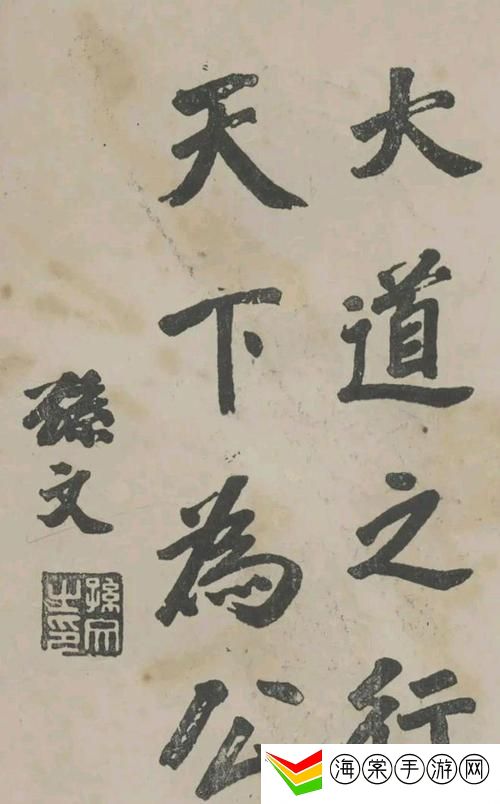 大道之行
天下為公
孫文
孫文之印
海棠手游网